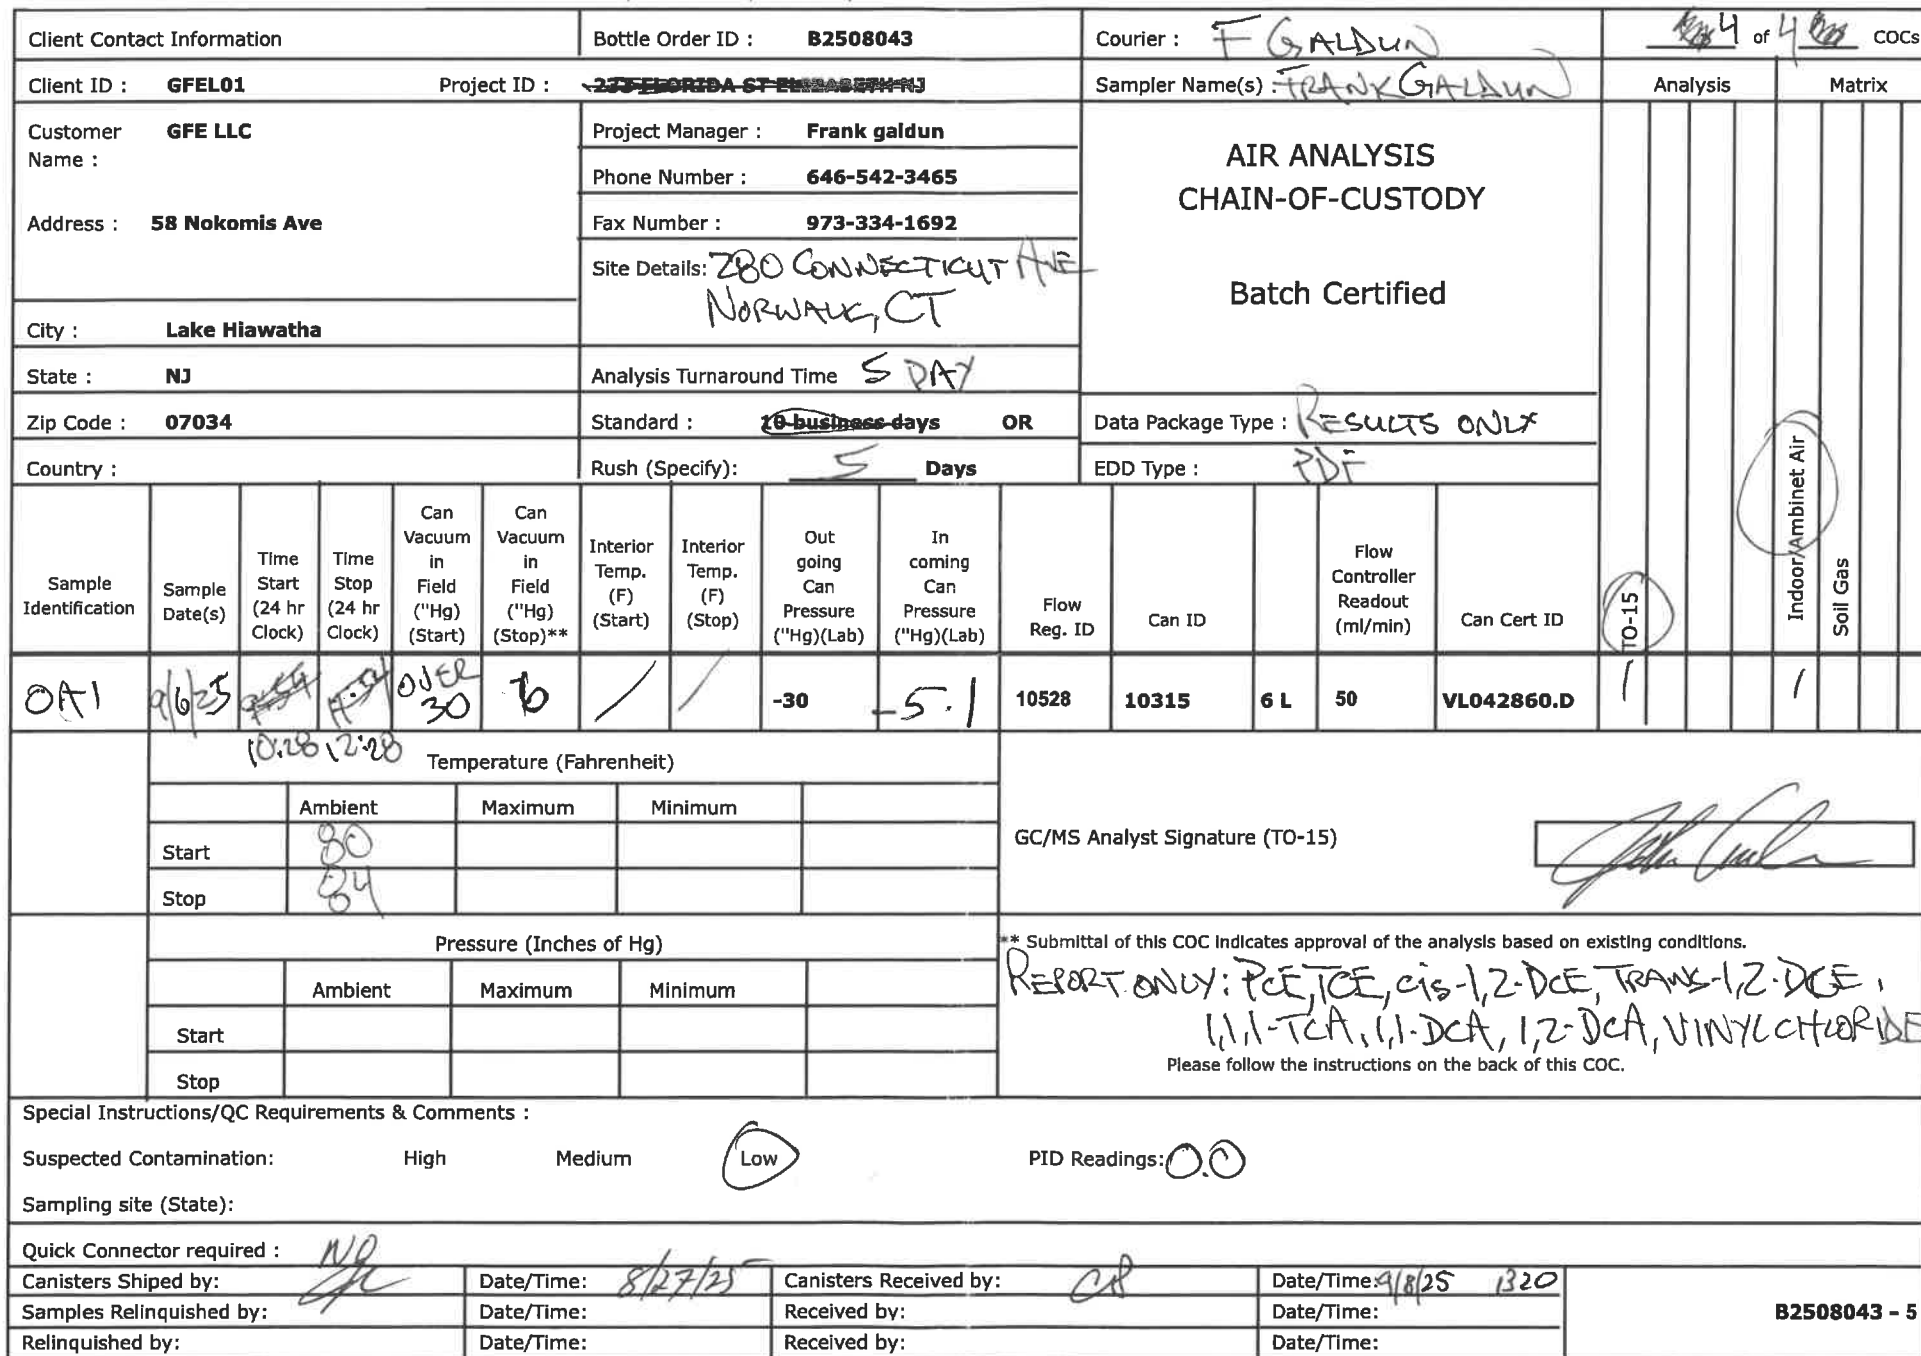 Client Contact Information Bottle Order ID : B2508043 Courier : F GALDUN 4 of 4 COCs
Client ID : GFEL01 Project ID : 233 FLORIDA ST ELIZABETH NJ Sampler Name(s) : FRANK GALDUN Analysis Matrix
Customer Name : GFE LLC
Address : 58 Nokomis Ave
City : Lake Hiawatha
State : NJ
Zip Code : 07034
Country :
Project Manager : Frank galdun
Phone Number : 646-542-3465
Fax Number : 973-334-1692
Site Details: 280 CONNECTICUT AVE
NORWALK, CT
Analysis Turnaround Time 5 DAY
Standard : 10 business days OR
Rush (Specify): 5 Days
AIR ANALYSIS
CHAIN-OF-CUSTODY
Batch Certified
Data Package Type : RESULTS ONLY
EDD Type : PDF
Sample Identification
Sample Date(s)
Time Start (24 hr Clock)
Time Stop (24 hr Clock)
Can Vacuum in Field ("Hg) (Start)
Can Vacuum in Field ("Hg) (Stop)**
Interior Temp. (F) (Start)
Interior Temp. (F) (Stop)
Out going Can Pressure ("Hg)(Lab)
In coming Can Pressure ("Hg)(Lab)
Flow Reg. ID
Can ID
Flow Controller Readout (ml/min)
Can Cert ID
TO-15
Indoor/Ambinet Air
Soil Gas
OA1 9/6/25 OVER 30 6 / / -30 -5.1 10528 10315 6 L 50 VL042860.D / /
10:28 12:28
Temperature (Fahrenheit)
Ambient Maximum Minimum
Start 80
Stop 84
GC/MS Analyst Signature (TO-15)
Pressure (Inches of Hg)
Ambient Maximum Minimum
Start
Stop
** Submittal of this COC indicates approval of the analysis based on existing conditions.
REPORT ONLY: PCE, TCE, cis-1,2-DCE, TRANS-1,2-DCE,
1,1,1-TCA, 1,1-DCA, 1,2-DCA, VINYL CHLORIDE
Please follow the instructions on the back of this COC.
Special Instructions/QC Requirements & Comments :
Suspected Contamination: High Medium Low PID Readings: 0.0
Sampling site (State):
Quick Connector required : NO
Canisters Shiped by: Date/Time: 8/27/25 Canisters Received by: Date/Time: 9/8/25 1320
Samples Relinquished by: Date/Time: Received by: Date/Time: B2508043 - 5
Relinquished by: Date/Time: Received by: Date/Time: